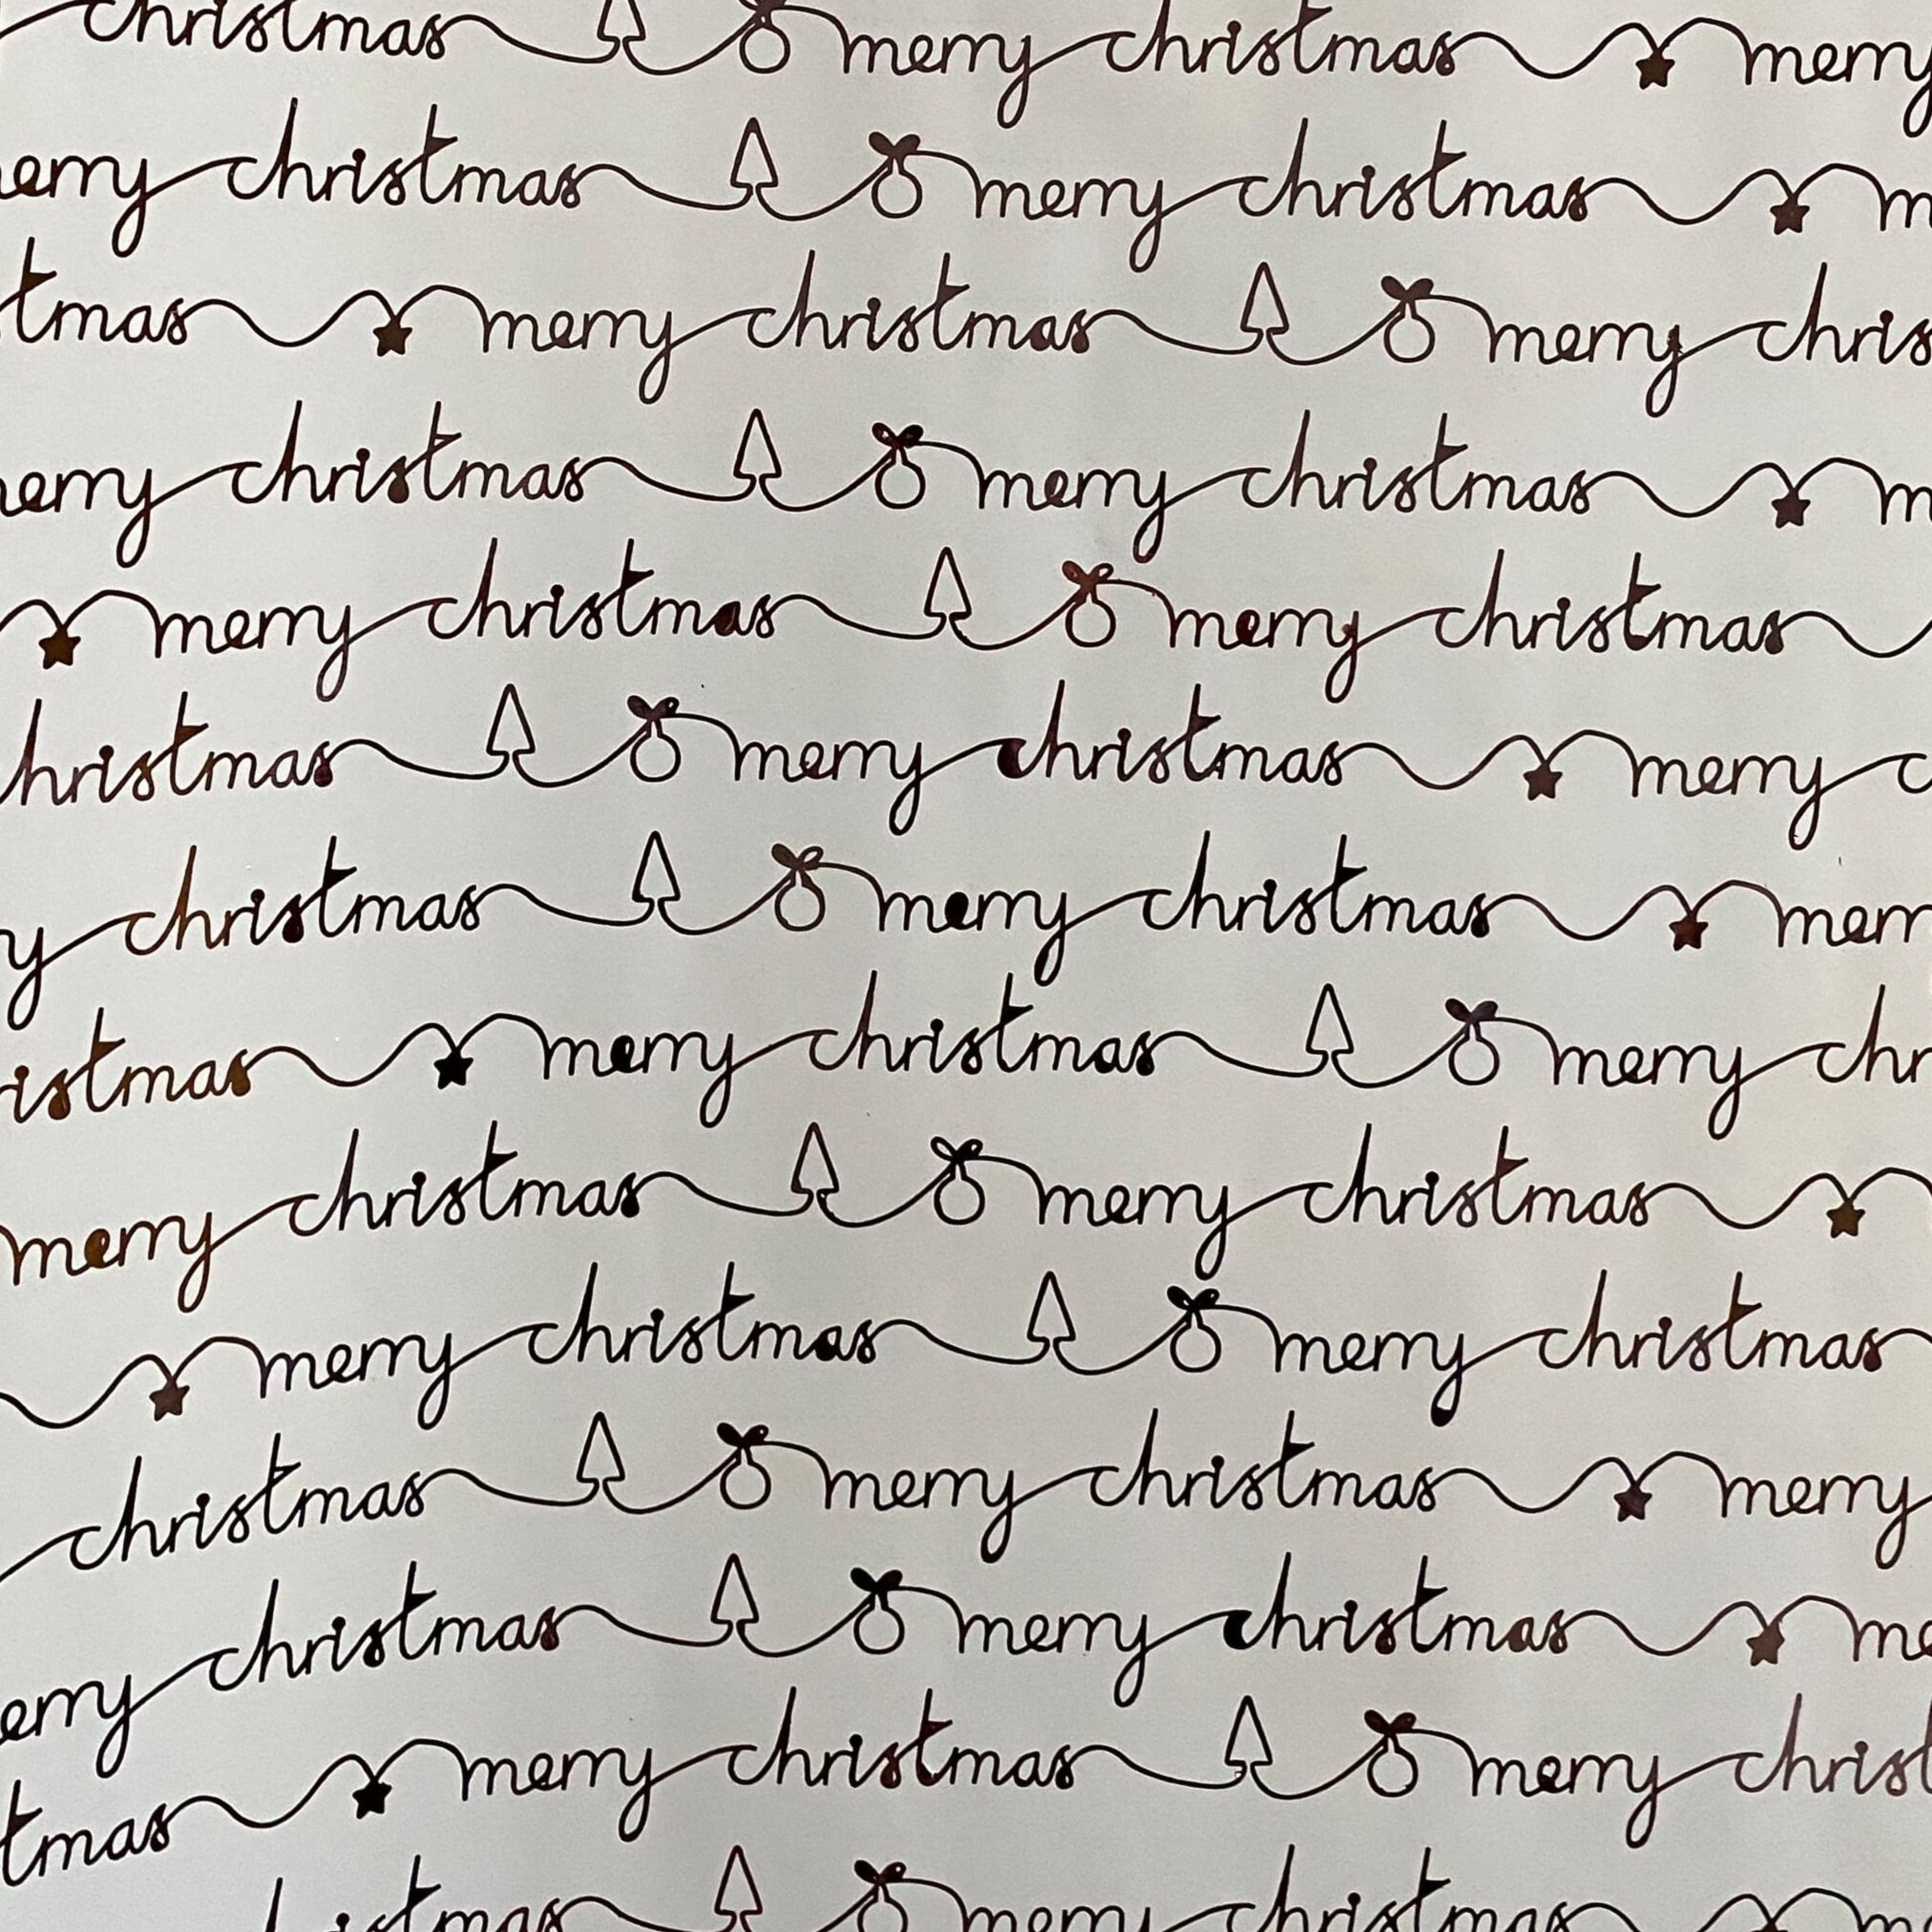 christmas merry christmas merry
erry christmas merry christmas m
tmas merry christmas merry chris
erry christmas merry christmas m
merry christmas merry christmas
hristmas merry christmas merry c
y christmas merry christmas merr
istmas merry christmas merry chr
merry christmas merry christmas
merry christmas merry christmas
christmas merry christmas merry
erry christmas merry christmas me
tmas merry christmas merry christ
christmas merry christmas m